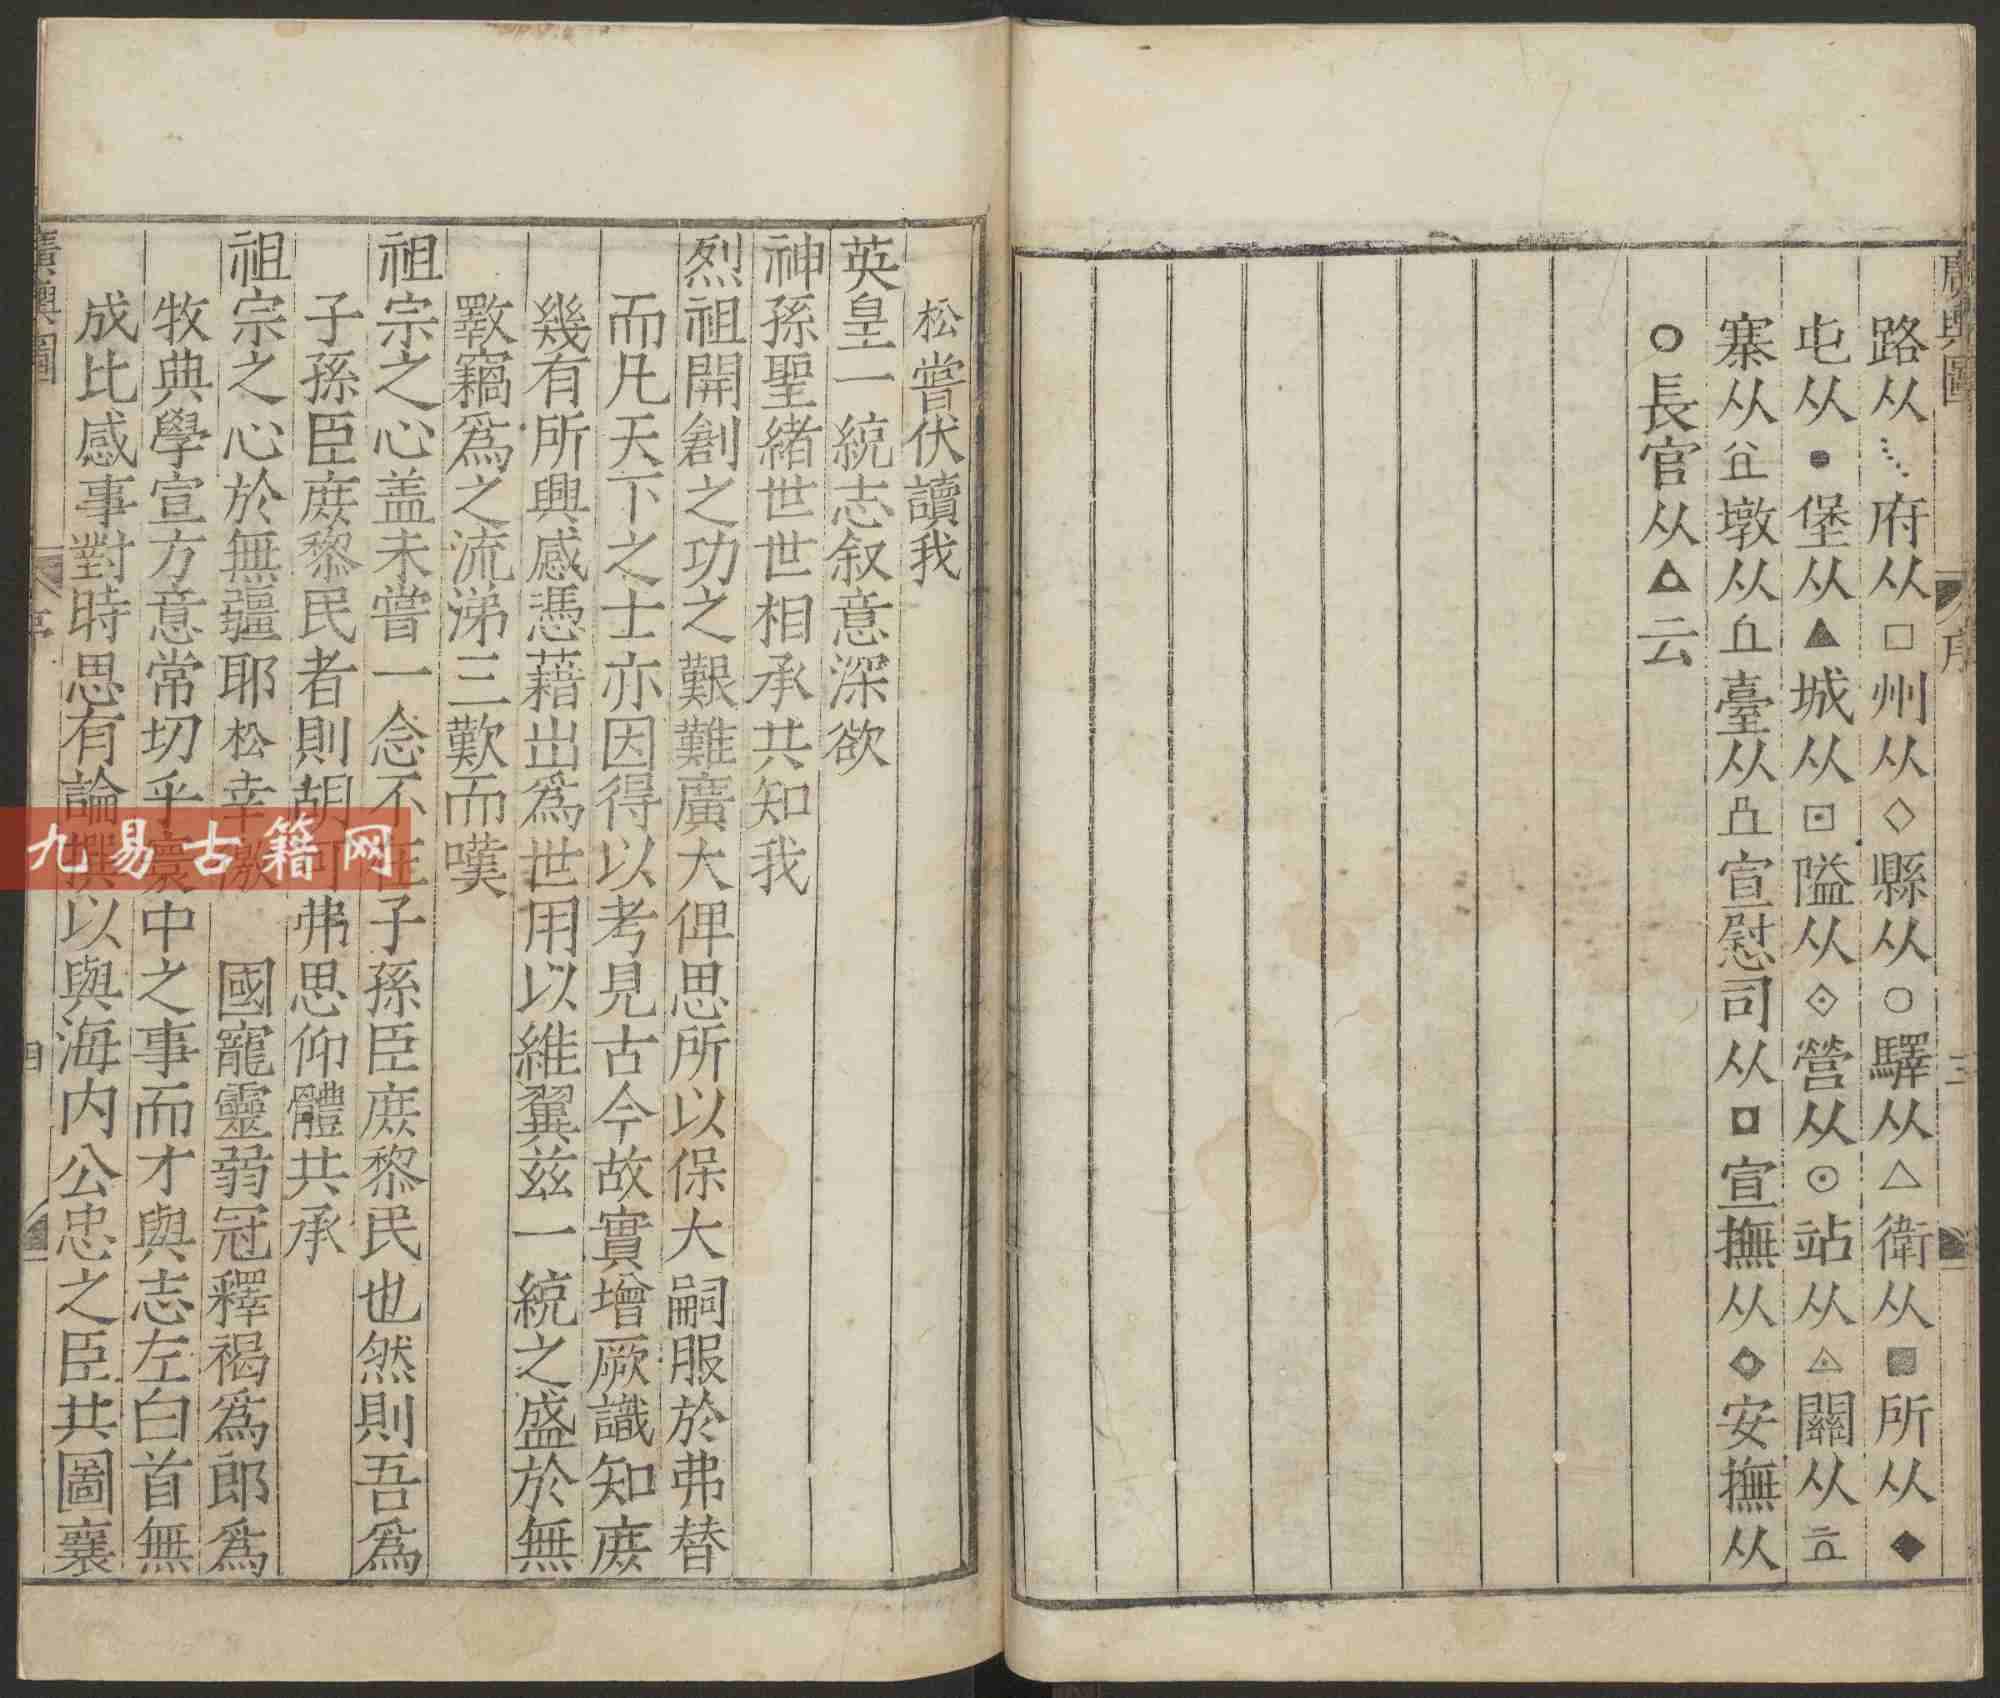 廣輿圖 序 三
路从⋱府从□州从◇縣从○驛从△衛从■所从◆
屯从●堡从▲城从⊡隘从⟐營从⊙站从◬關从
寨从墩从臺从宣慰司从◘宣撫从◈安撫从
○長官从▲云
松嘗伏讀我
英皇一統志叙意深欲
神孫聖緒世世相承共知我
烈祖開創之功之艱難廣大俾思所以保大嗣服於弗替
而凡天下之士亦因得以考見古今故實增厥識知庶
幾有所興感憑藉出爲世用以維翼茲一統之盛於無
斁竊爲之流涕三歎而嘆
祖宗之心盖未嘗一念不在子孫臣庶黎民也然則吾爲
子孫臣庶黎民者則胡可弗思仰體共承
祖宗之心於無疆耶松幸徼 國寵靈弱冠釋褐爲郎爲
牧典學宣方意常切乎寰中之事而才與志左白首無
成比感事對時思有論撰以與海内公忠之臣共圖襄
廣輿圖 序 四
九易古籍网